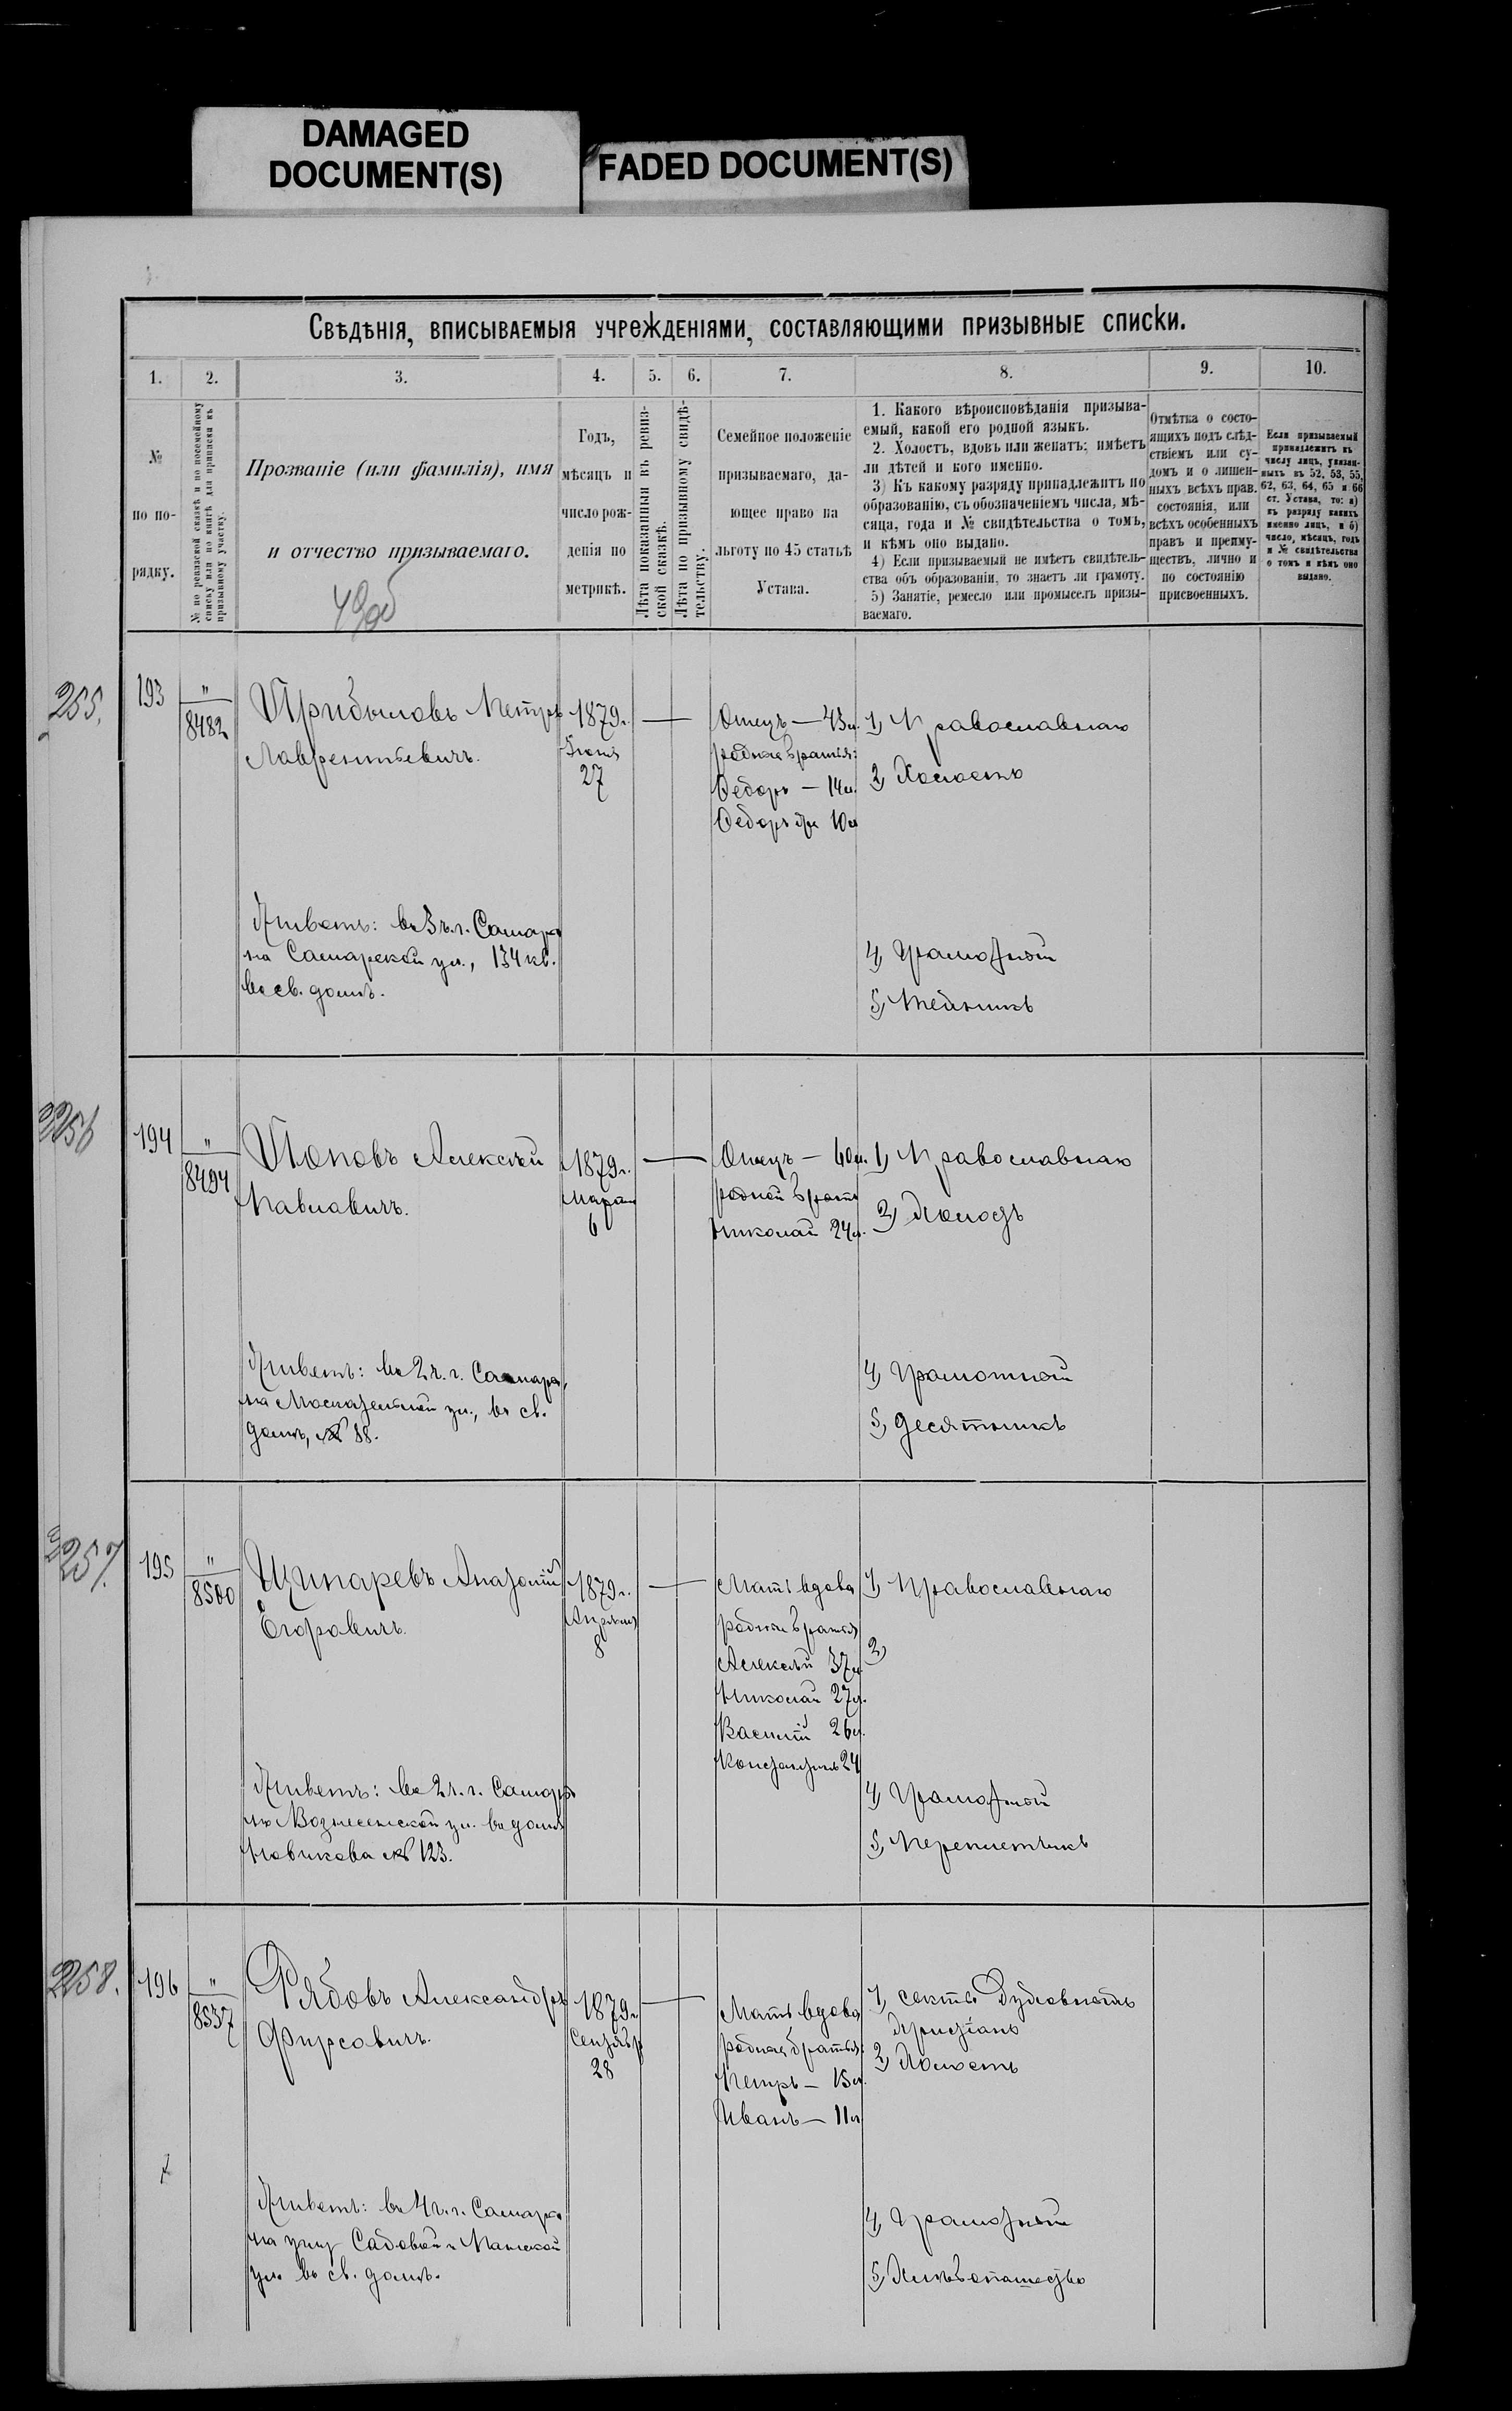 DAMAGED
DOCUMENT(S)
FADED DOCUMENT(S)
Свѣдѣнія, вписываемыя учрежденіями, составляющими призывные списки.
1. 2. 3. 4. 5. 6. 7. 8. 9. 10.
№
по по-
рядку.
№ по ревизской сказкѣ и посемейному
списку или по книгѣ для приписки къ
призывному участку.
Прозваніе (или фамилія), имя
и отчество призываемаго.
Годъ,
мѣсяцъ и
число рож-
денія по
метрикѣ.
Лѣта показанныя въ ревиз-
ской сказкѣ.
Лѣта по призывному свидѣ-
тельству.
Семейное положеніе
призываемаго, да-
ющее право на
льготу по 45 статьѣ
Устава.
1. Какого вѣроисповѣданія призыва-
емый, какой его родной языкъ.
2. Холостъ, вдовъ или женатъ; имѣетъ
ли дѣтей и кого именно.
3) Къ какому разряду принадлежитъ по
образованію, съ обозначеніемъ числа, мѣ-
сяца, года и № свидѣтельства о томъ,
и кѣмъ оно выдано.
4) Если призываемый не имѣетъ свидѣтель-
ства объ образованіи, то знаетъ ли грамоту.
5) Занятіе, ремесло или промыселъ призы-
ваемаго.
Отмѣтка о состо-
ящихъ подъ слѣд-
ствіемъ или су-
домъ и о лишен-
ныхъ всѣхъ прав.
состоянія, или
всѣхъ особенныхъ
правъ и преиму-
ществъ, лично и
по состоянію
присвоенныхъ.
Если призываемый
принадлежитъ къ
числу лицъ, указан-
ныхъ въ 52, 53, 55,
62, 63, 64, 65 и 66
ст. Устава, то: а)
къ разряду какихъ
именно лицъ, и б)
число, мѣсяцъ, годъ
и № свидѣтельства
о томъ и кѣмъ оно
выдано.
255.
193
"
8482
Прибыловъ Петръ
Лаврентьевичъ.
1879 г.
Іюня
27
Отецъ — 43 л.
родные братья:
Федоръ — 14 л.
Федоръ 10 л
1) Православнаго
2) Холостъ
Живетъ: въ 3 ч. г. Самары
на Самарской ул., 134 кв.
въ св. домѣ.
4) Грамотной
5)
256
194
"
8494
Поповъ Алексѣй
Павловичъ.
1879 г.
Марта
6
Отецъ — 60 л.
родной братъ
Николай 24 л.
1) Православнаго
2) Холостъ
Живетъ: въ 2 ч. г. Самары,
на Москательной ул., въ св.
домѣ, № 88.
4) Грамотной
5) Десятникъ
257.
195
"
8500
Анатолій
Егоровичъ.
1879 г.
Апрѣля
8
Мать вдова
родные братья
Алексѣй 37 л
Николай 27 л.
Василій 26 л.
Константинъ 24
1) Православнаго
2)
Живетъ: въ 2 ч. г. Самары
на Вознесенской ул. въ домѣ
Новикова № 123.
4) Грамотной
5) Переплетчикъ
258.
196
"
8537
Рябовъ Александръ
Фирсовичъ.
1879 г.
Сентября
28
Мать вдова
родные братья:
Петръ — 15 л.
Иванъ — 11 л
1) секты Духовныхъ
Христіанъ
2) Холостъ
Живетъ: въ 4 ч. г. Самары
на углу Садовой и Панской
ул. въ св. домѣ.
4) Грамотной
5) Хлѣбопашество